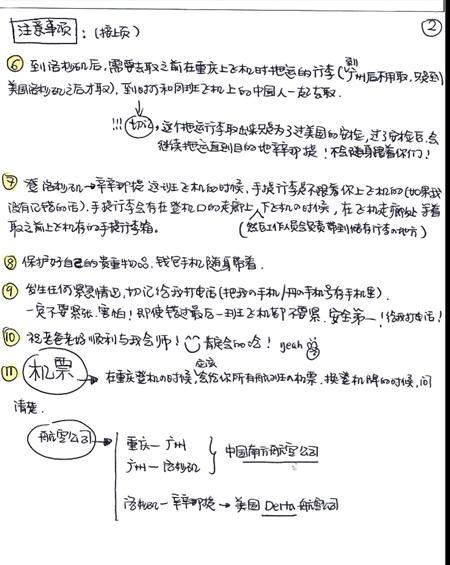 注意事项：(接上页) ②
⑥ 到洛杉矶后，需要去取之前在重庆上飞机时托运的行李(到广州后不用取，只需到
美国洛杉矶之后才取)，到时可和同班飞机上的中国人一起去取.
!!! 切记，这个托运行李取出来只是为了过美国的安检，过了安检后，会
继续托运直到目的地辛辛那提！不会随身跟着你们！
⑦ 登洛杉矶→辛辛那提 这班飞机的时候，手提行李是不跟着你上飞机的(如果我
没有记错的话)，手提行李会有在登机口的走廊上，下飞机的时候，在飞机走廊处等着
取之前上飞机存的手提行李箱. (然后工作人员会负责带到储存行李的地方)
⑧ 保护好自己的贵重物品. 钱包手机随身带着.
⑨ 发生任何紧急情况，切记给我打电话(把我的手机/的手机号存手机里).
一定不要紧张. 害怕！即使错过最后一班飞机都不要紧. 安全第一！给我打电话！
⑩ 祝老爸老妈顺利与我会师！肯定会的哈！yeah
⑪ 机票→在重庆登机的时候，应该会给你所有航班的机票. 换登机牌的时候，问
清楚.
航空公司→
重庆—广州
广州—洛杉矶
中国南方航空公司
洛杉矶—辛辛那提→美国 Derta 航空公司